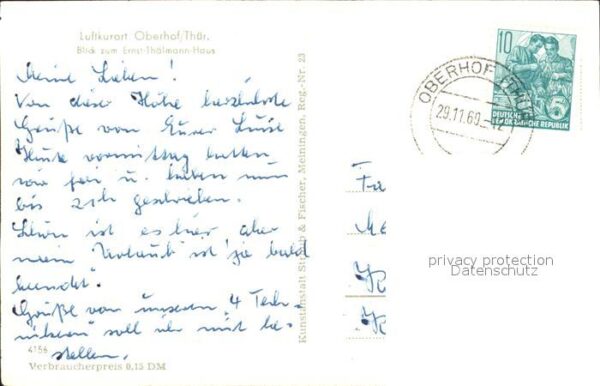 Luftkurort Oberhof/Thür.
Blick zum Ernst-Thälmann-Haus
Meine Lieben!
Von dieser Höhe herzliche
Grüße von Eurer Luise
Heute vormittag hatten
wir frei u. haben nun
bis geschrieben.
Schön ist es hier, aber
mein "Urlaub" ist ja bald
beendet.
Grüße von unseren 4 Tech-
nikern soll ich mit be-
stellen.
4156
Verbraucherpreis 0.15 DM
Kunstanstalt Straub & Fischer, Meiningen, Reg.-Nr. 23
10
DEUTSCHE
DEMOKRATISCHE REPUBLIK
OBERHOF (THÜR)
29.11.60
Fa
privacy protection
Datenschutz